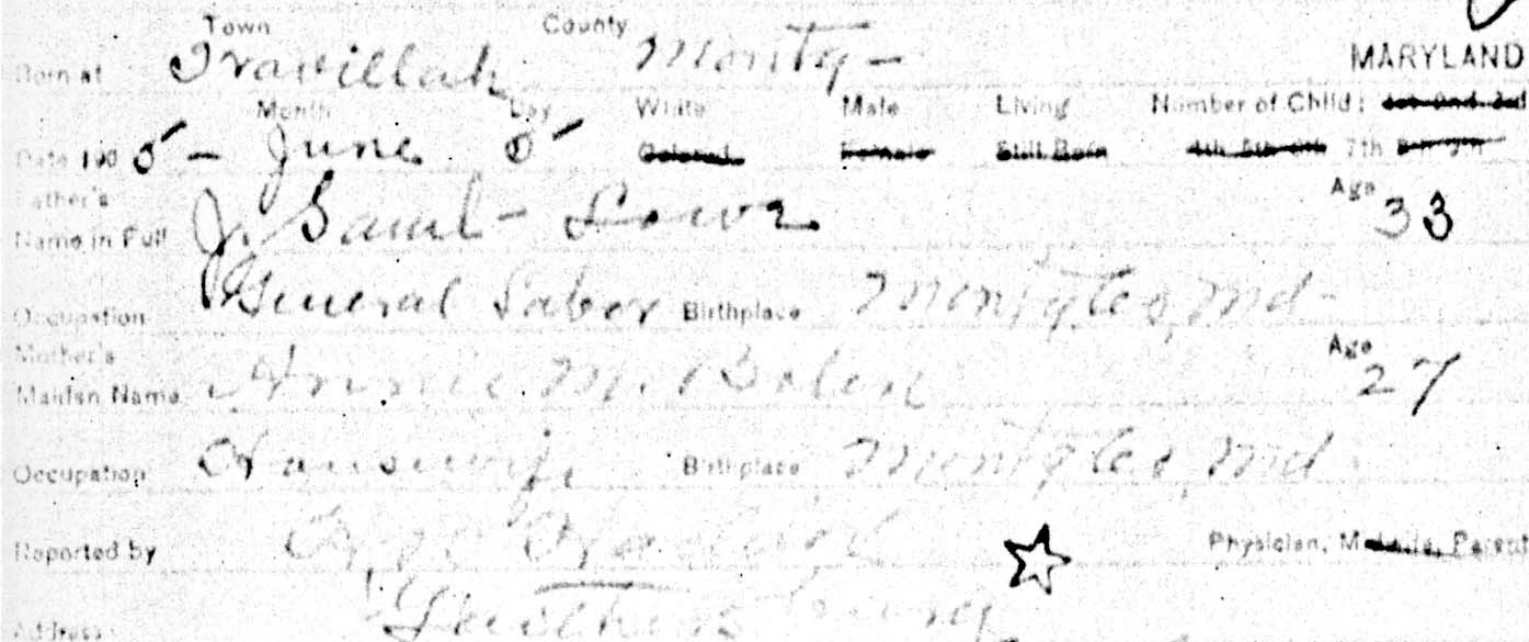 Town County
Born at Travillah Monty - MARYLAND
Month Day White Male Living Number of Child: 1st 2nd 3rd
Date 190 5 - June 5 Colored Female Still Born 4th 5th 6th 7th 8th 9th
Father's Age 33
Name in Full J. Saml - Lowe
Occupation General Labor Birthplace Montg Co, Md -
Mother's Age 27
Maiden Name Annie M. Bolen
Occupation Housewife Birthplace Montg Co, Md
Reported by Physician, Midwife, Parent
Address